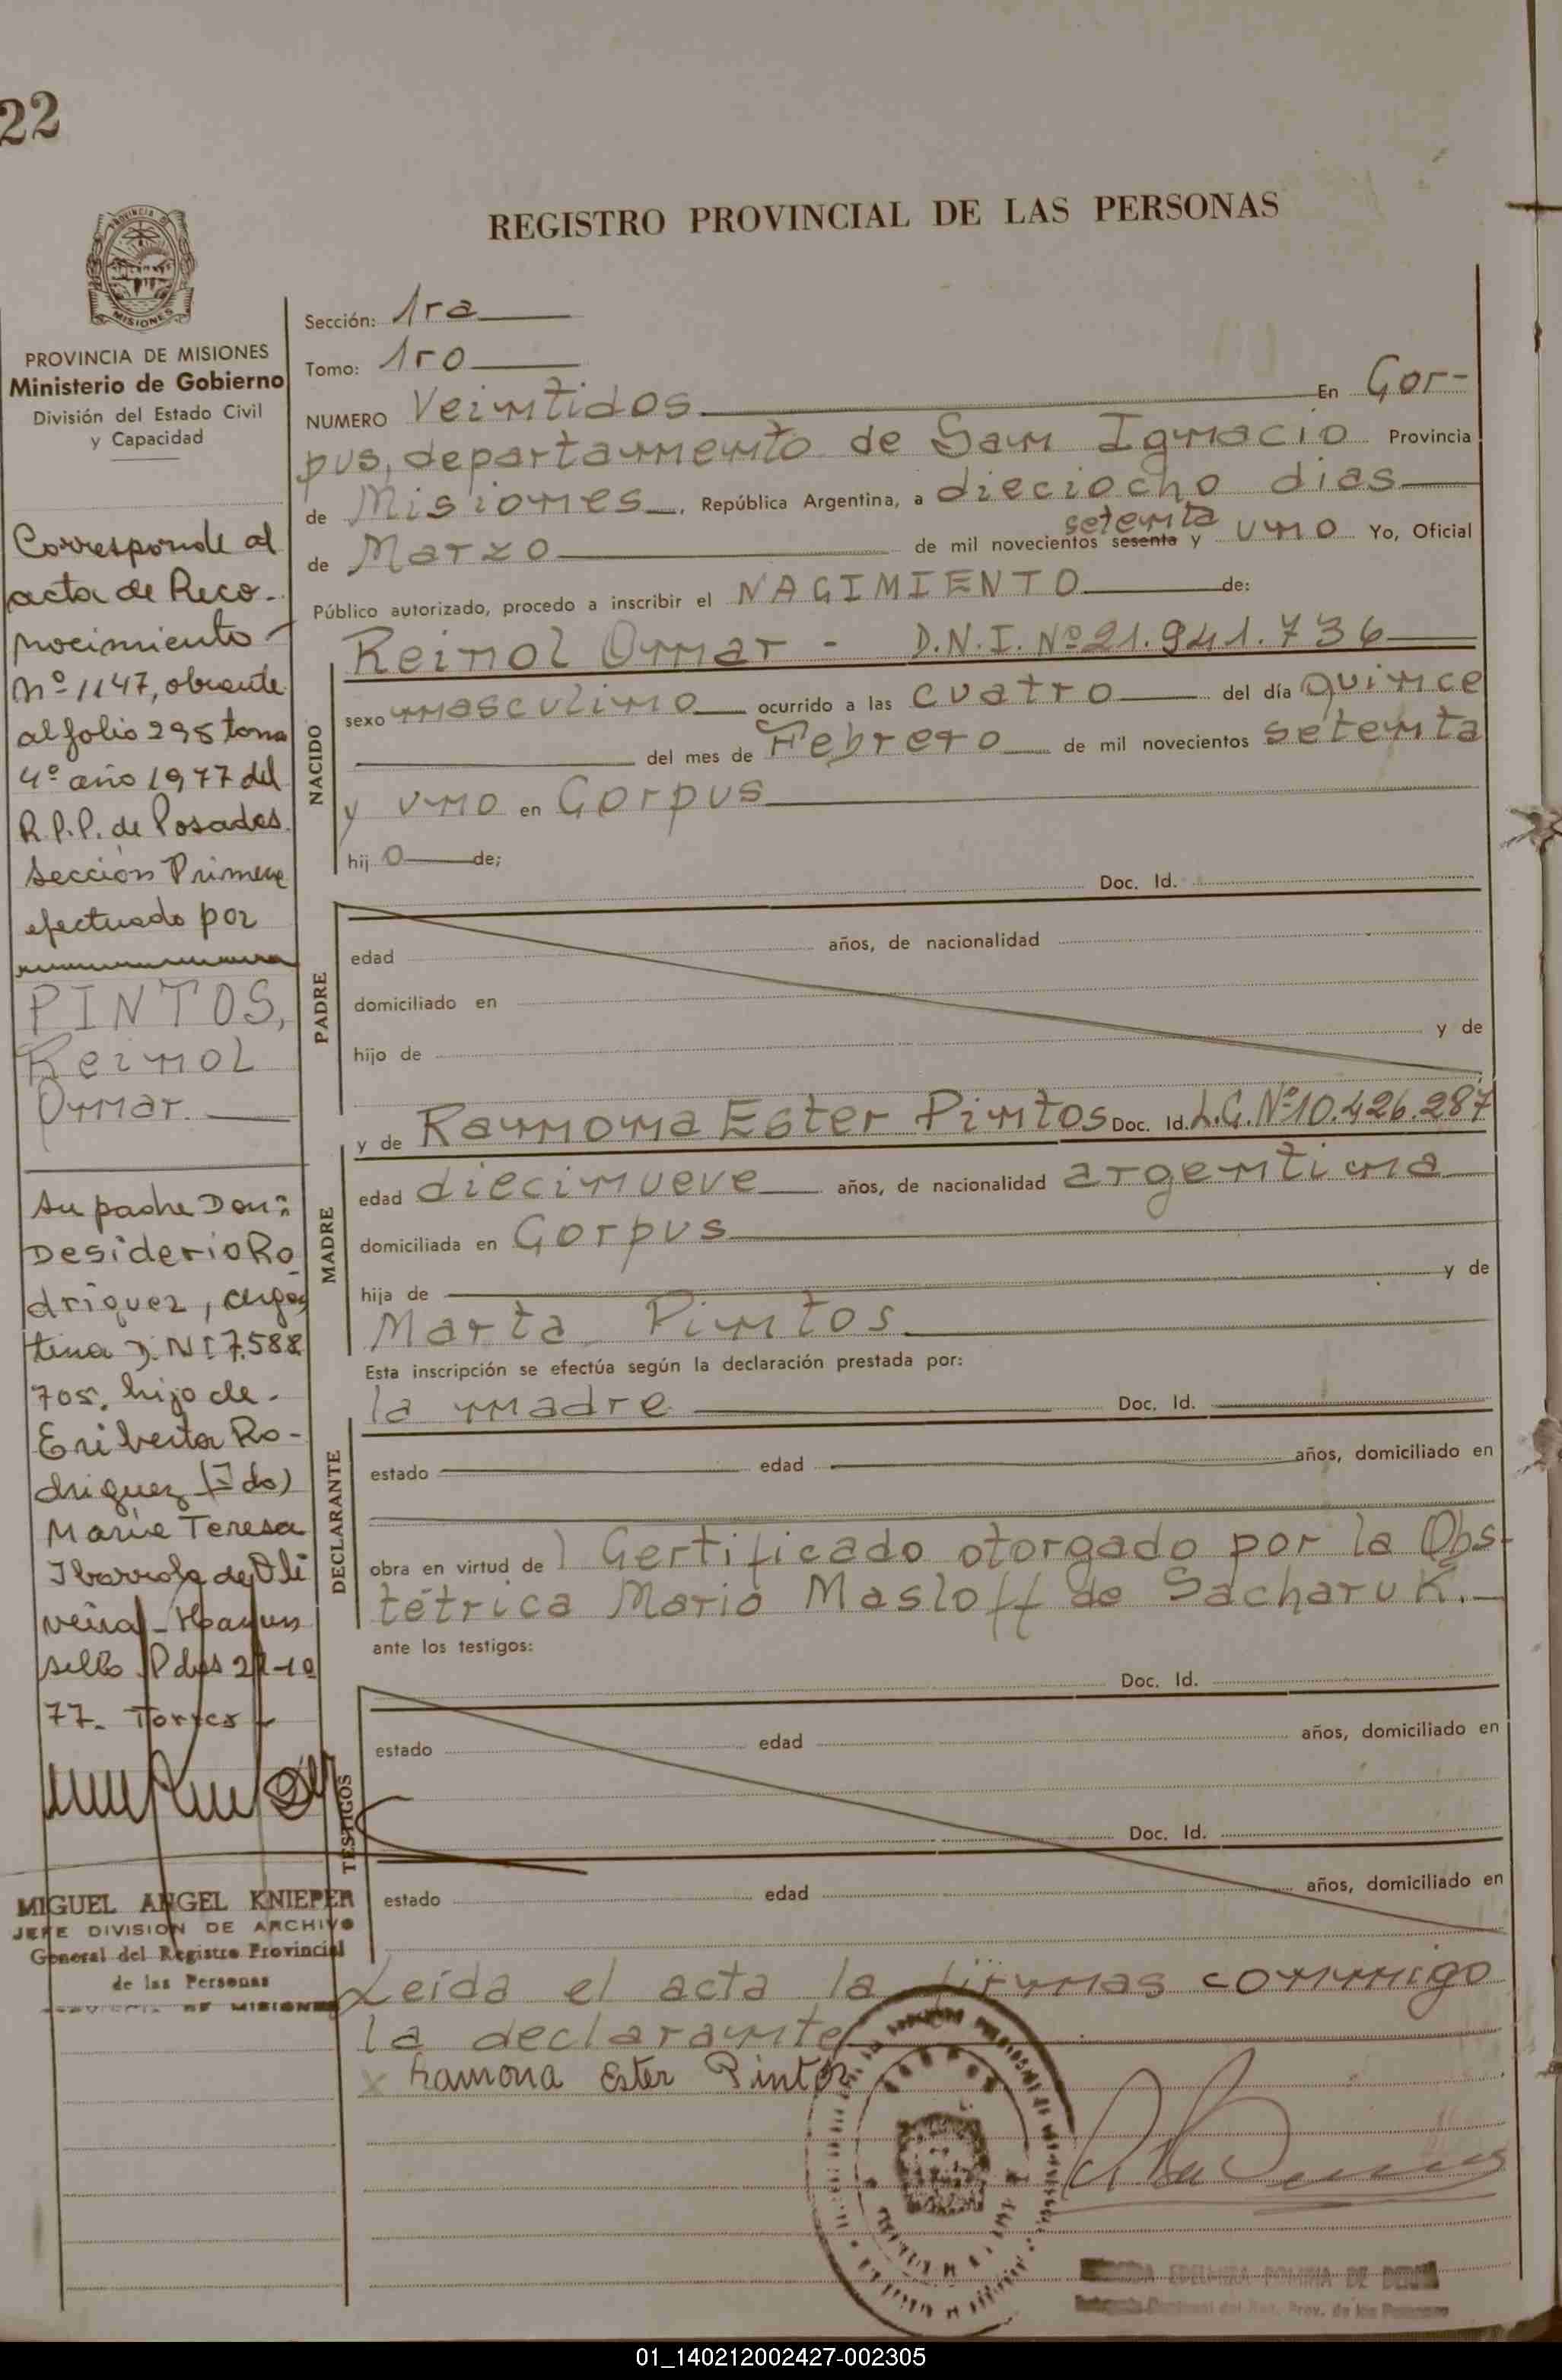 22
REGISTRO PROVINCIAL DE LAS PERSONAS
MISIONES
PROVINCIA DE MISIONES
Ministerio de Gobierno
División del Estado Civil
y Capacidad
Corresponde al
acta de Reco-
nocimiento
Nº 1147, obrante
al folio 295 tomo
4º año 1977 del
R.P.P. de Posadas
Sección Primera
efectuado por
PINTOS,
Reinol
Omar.
Su padre Don:
Desiderio Ro
driguez, argen
tino D.N.I 7.588
705, hijo de
Eriberto Ro-
driguez (Fdo)
María Teresa
Ibarrola de Oli
veira - Hay un
sello Pdas
77. Torres
MIGUEL ANGEL KNIEPER
JEFE DIVISION DE ARCHIVO
General del Registro Provincial
de las Personas
Sección: 1ra
Tomo: 1ro
NUMERO Veintidos En Cor-
pus, departamento de San Ignacio Provincia
de Misiones, República Argentina, a dieciocho dias
setenta
de Marzo de mil novecientos sesenta y uno Yo, Oficial
Público autorizado, procedo a inscribir el NACIMIENTO de:
Reinol Omar - D.N.I. Nº 21.941.736
NACIDO
sexo masculino ocurrido a las cuatro del día quince
del mes de Febrero de mil novecientos setenta
y uno en Corpus
hijo de;
Doc. Id.
PADRE
edad años, de nacionalidad
domiciliado en
hijo de y de
MADRE
y de Ramona Ester Pintos Doc. Id. L.C. Nº 10.426.287
edad diecinueve años, de nacionalidad argentina
domiciliada en Corpus
hija de y de
Marta Pintos
Esta inscripción se efectúa según la declaración prestada por:
DECLARANTE
la madre Doc. Id.
estado edad años, domiciliado en
obra en virtud de l Certificado otorgado por la Obs-
tétrica Mario Masloff de Sacharuk.
ante los testigos:
TESTIGOS
Doc. Id.
estado edad años, domiciliado en
Doc. Id.
estado edad años, domiciliado en
Leída el acta la firmas conmigo
la declarante
x Ramona Ester Pintos
01_140212002427-002305